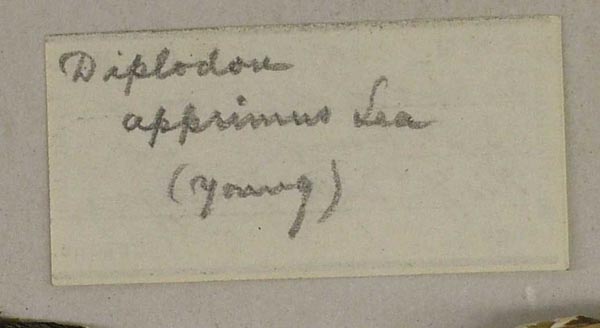 Diplodon
apprimus Lea
(young)